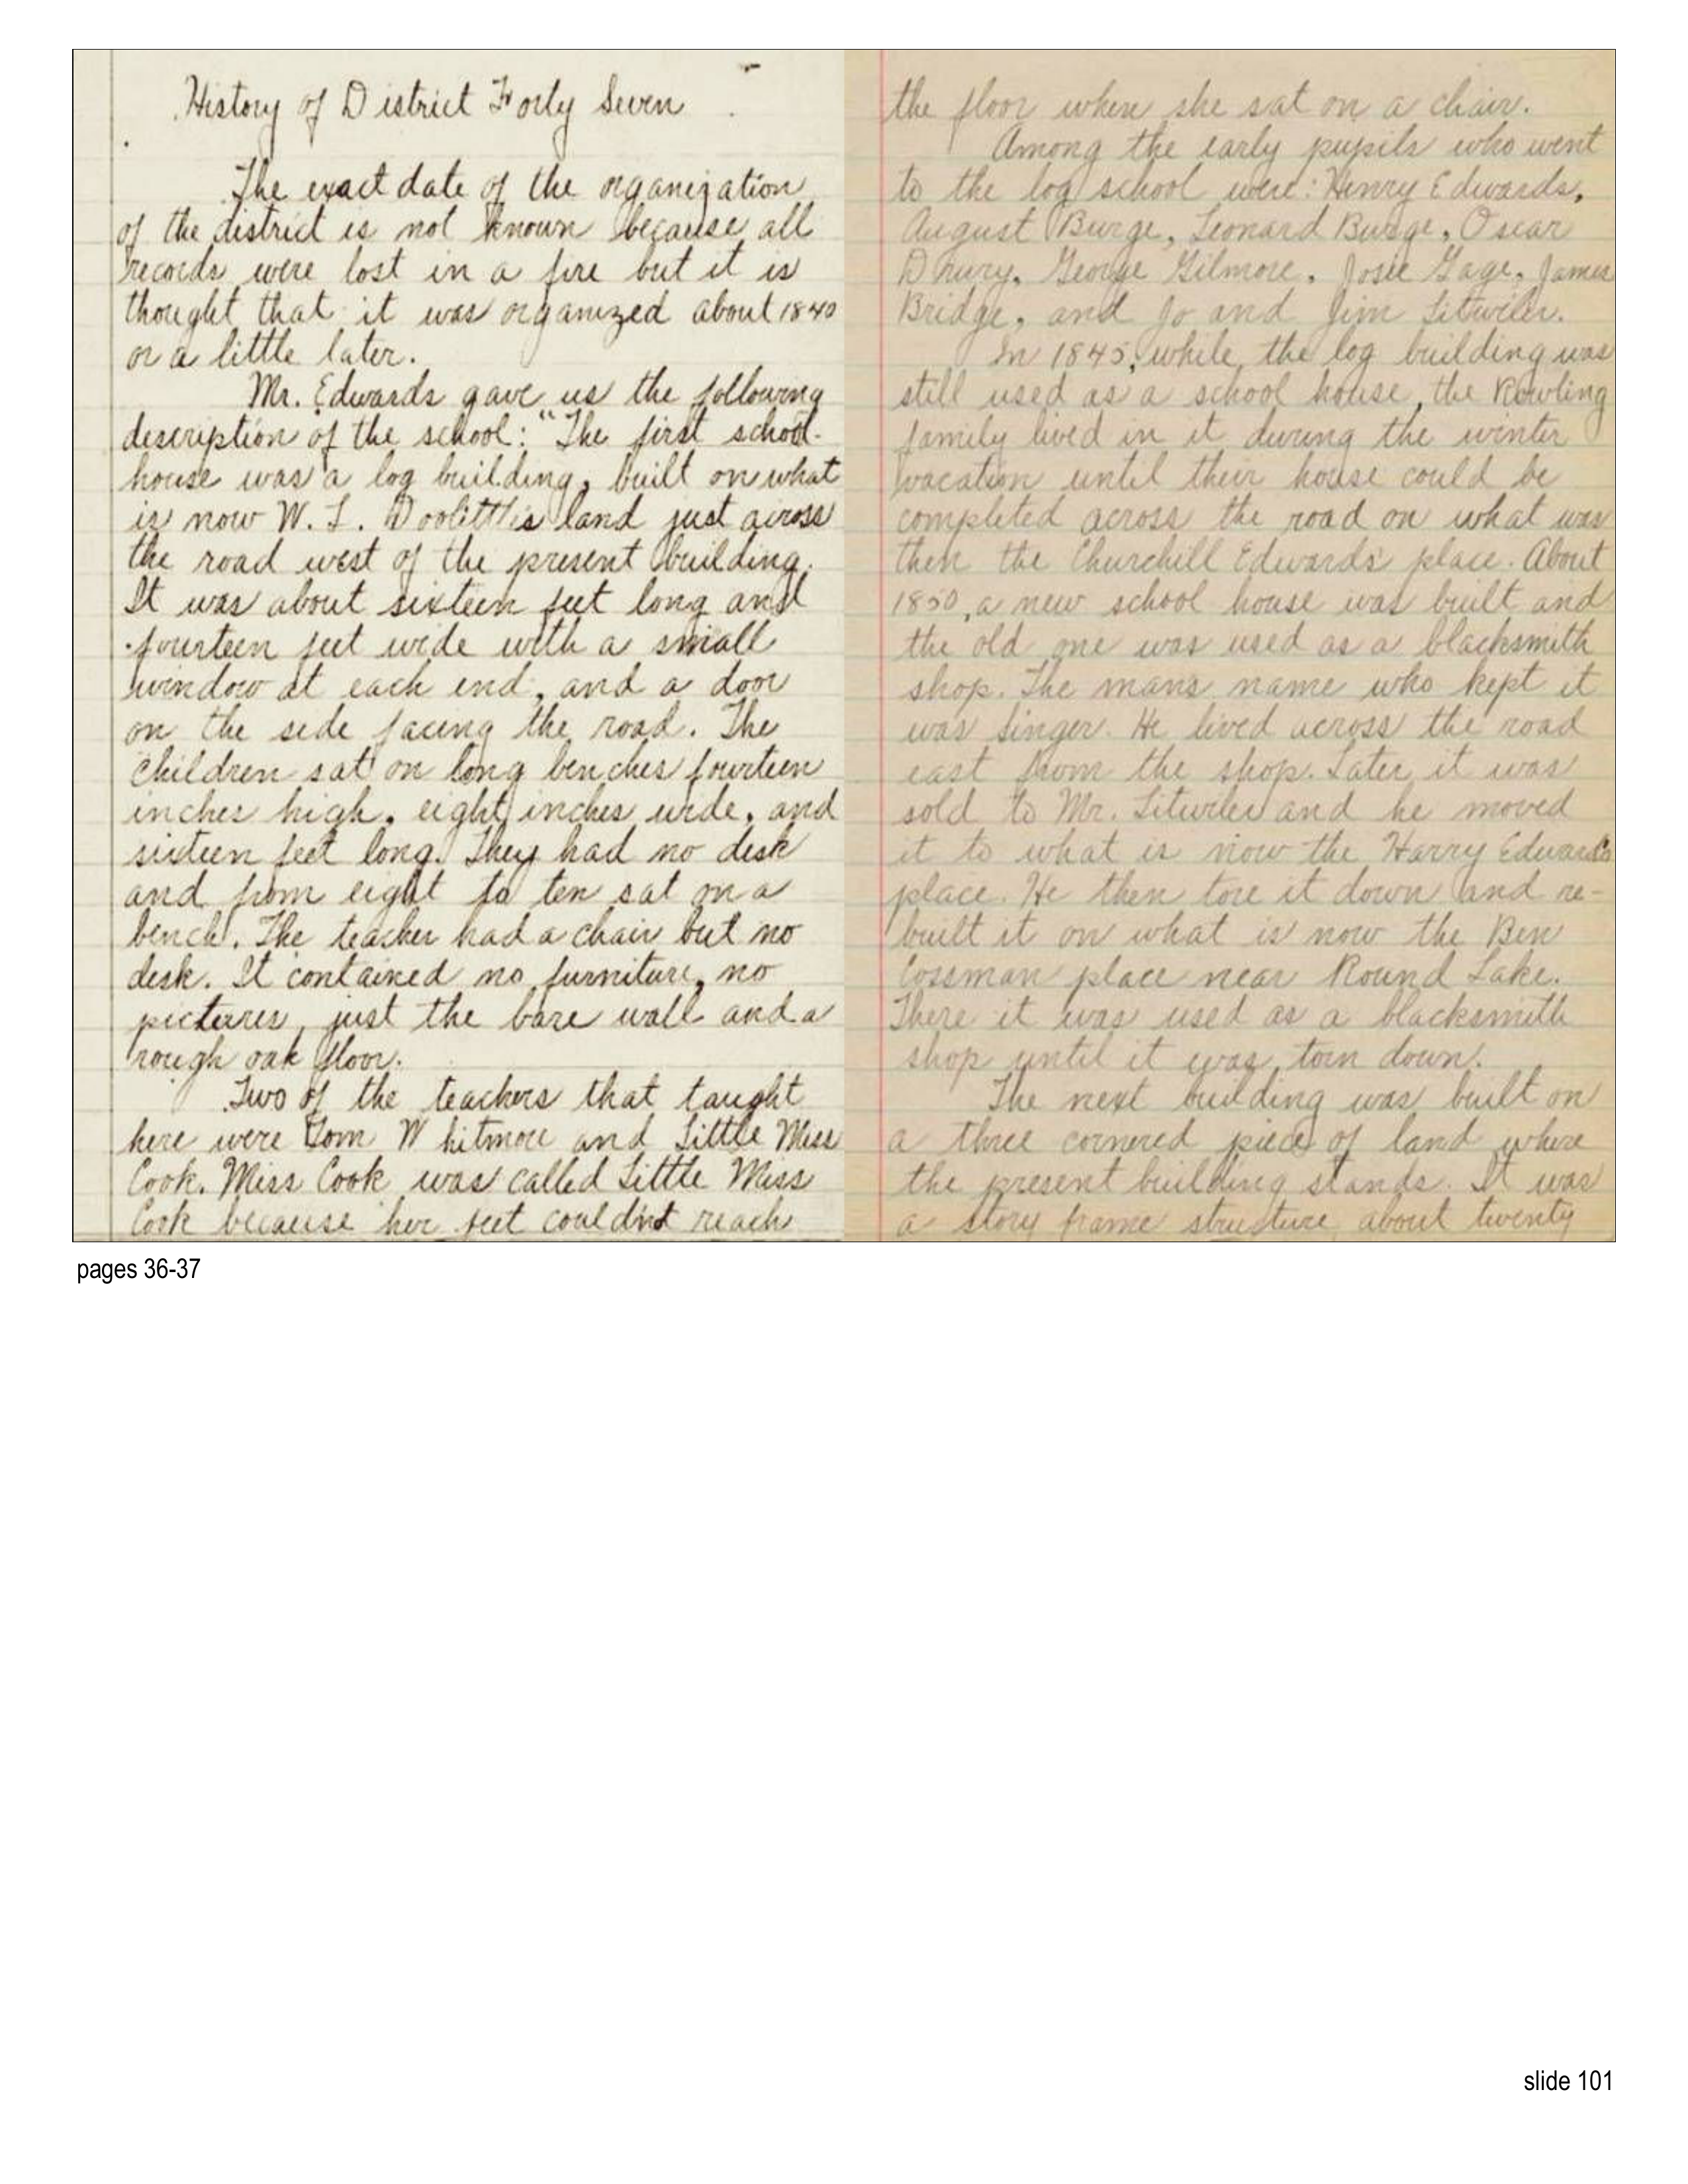 History of District Forty Seven
The exact date of the organization
of the district is not known because all
records were lost in a fire but it is
thought that it was organized about 1840
or a little later.
Mr. Edwards gave us the following
description of the school: "The first school-
house was a log building, built on what
is now W. L. Doolittle's land just across
the road west of the present building.
It was about sixteen feet long and
fourteen feet wide with a small
window at each end, and a door
on the side facing the road. The
children sat on long benches fourteen
inches high, eight inches wide, and
sixteen feet long. They had no desk
and from eight to ten sat on a
bench. The teacher had a chair but no
desk. It contained no furniture, no
pictures, just the bare wall and a
rough oak floor.
Two of the teachers that taught
here were Tom Whitmore and Little Miss
Cook. Miss Cook was called Little Miss
Cook because her feet couldn't reach
the floor when she sat on a chair.
Among the early pupils who went
to the log school were: Henry Edwards,
August Burge, Leonard Burge, Oscar
Drury, George Gilmore, Josie Gage, James
Bridge, and Jo and Jim Litwiler.
In 1845, while the log building was
still used as a school house, the Rowling
family lived in it during the winter
vacation until their house could be
completed across the road on what was
then the Churchill Edwards' place. About
1850, a new school house was built and
the old one was used as a blacksmith
shop. The man's name who kept it
was Singer. He lived across the road
east from the shop. Later it was
sold to Mr. Litwiler and he moved
it to what is now the Harry Edwards
place. He then tore it down and re-
built it on what is now the Ben
Cossman place near Round Lake.
There it was used as a blacksmith
shop until it was torn down.
The next building was built on
a three cornered piece of land where
the present building stands. It was
a story frame structure about twenty
pages 36-37
slide 101